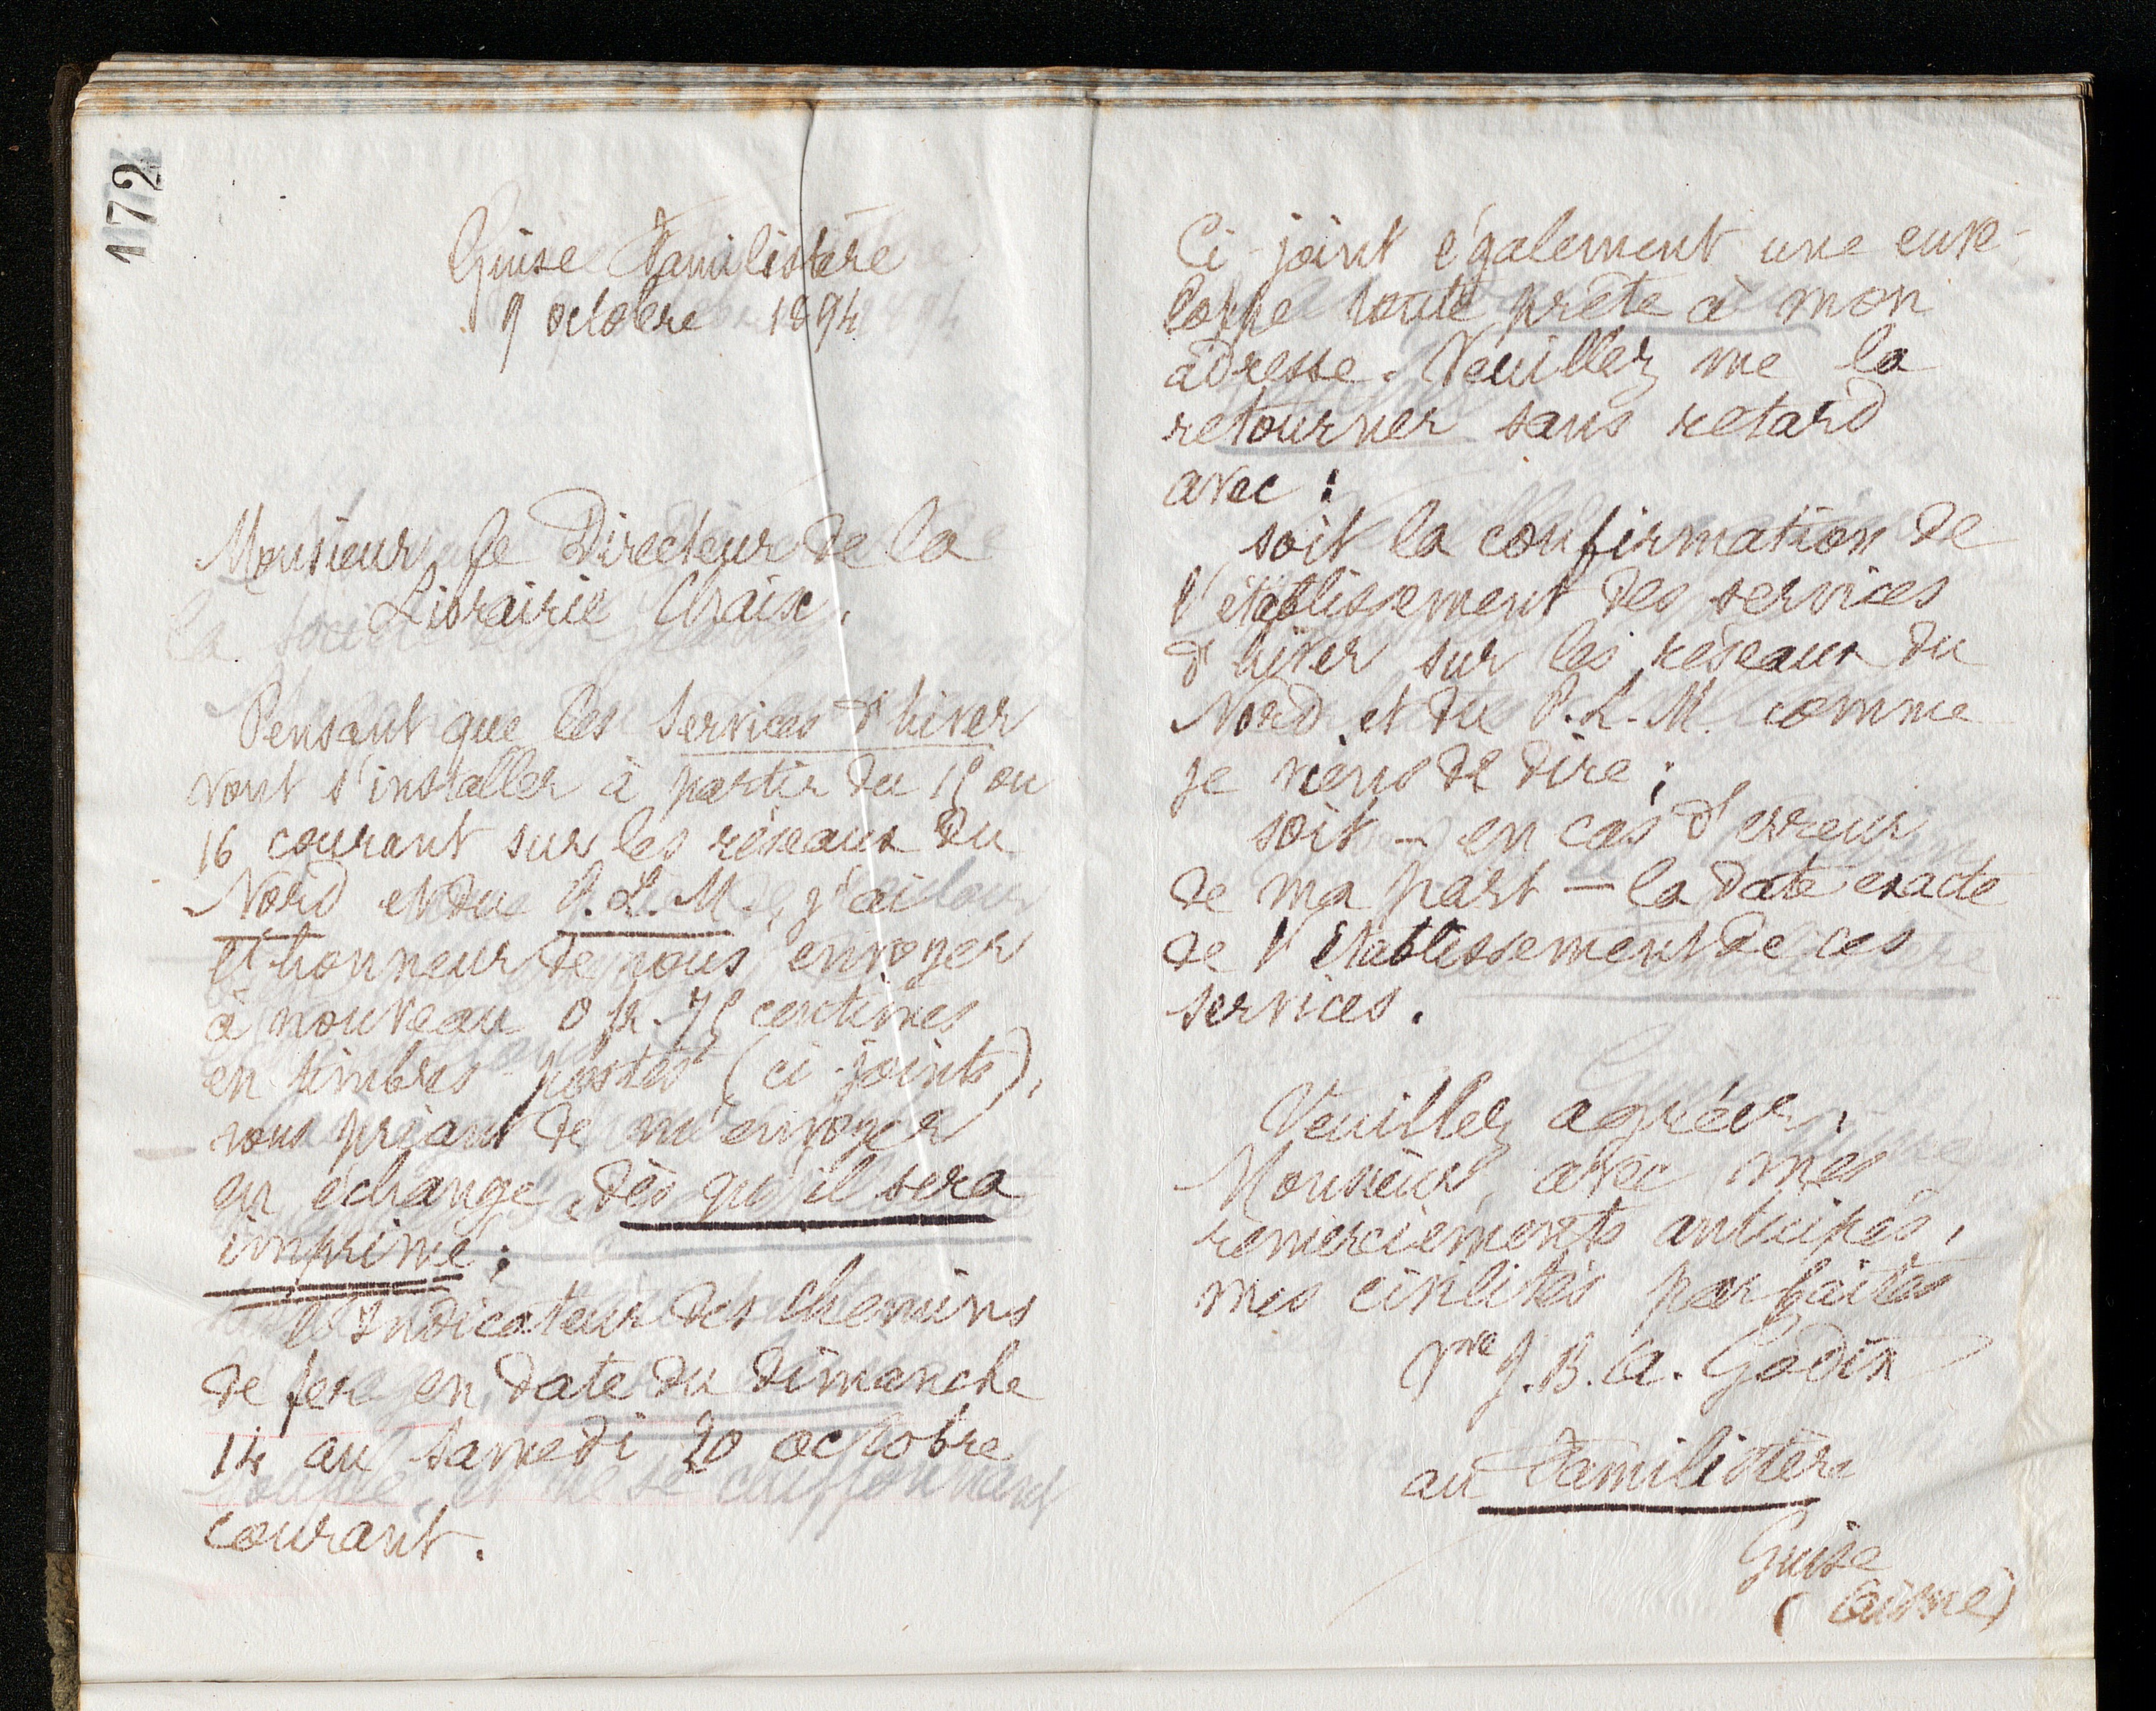 172
Guise Familistère
9 octobre 1894
Monsieur le Directeur de la
Librairie Chaix.
Pensant que les services d'hiver
vont s'installer à partir du 15 ou
16 courant sur les réseaux du
Nord et du P.L.M., j'ai
l'honneur de vous envoyer
à nouveau 0 fr. 75 centimes
en timbres-postes (ci-joints),
vous priant de m'envoyer
en échange, dès qu'il sera
imprimé;
l'Indicateur des chemins
de fer en date du dimanche
14 au samedi 20 octobre
courant.
Ci-joint également une enve-
loppe toute prête à mon
adresse. Veuillez me la
retourner sans retard
avec :
soit la confirmation de
l'établissement des services
d'hiver sur les réseaux du
Nord et du P.L.M. comme
je viens de dire;
soit - en cas d'erreur
de ma part - la date exacte
de l'établissement de ces
services.
Veuillez agréer,
Monsieur, avec mes
remerciements anticipés,
mes civilités parfaites
Vve J.B.A. Godin
au Familistère
Guise
(Aisne)